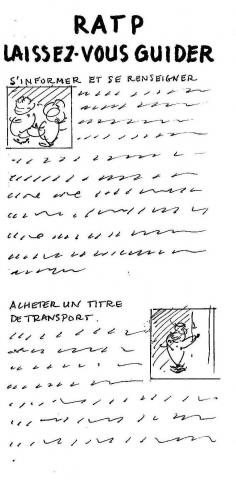 RATP
LAISSEZ-VOUS GUIDER
S'INFORMER ET SE RENSEIGNER
ACHETER UN TITRE
DE TRANSPORT.